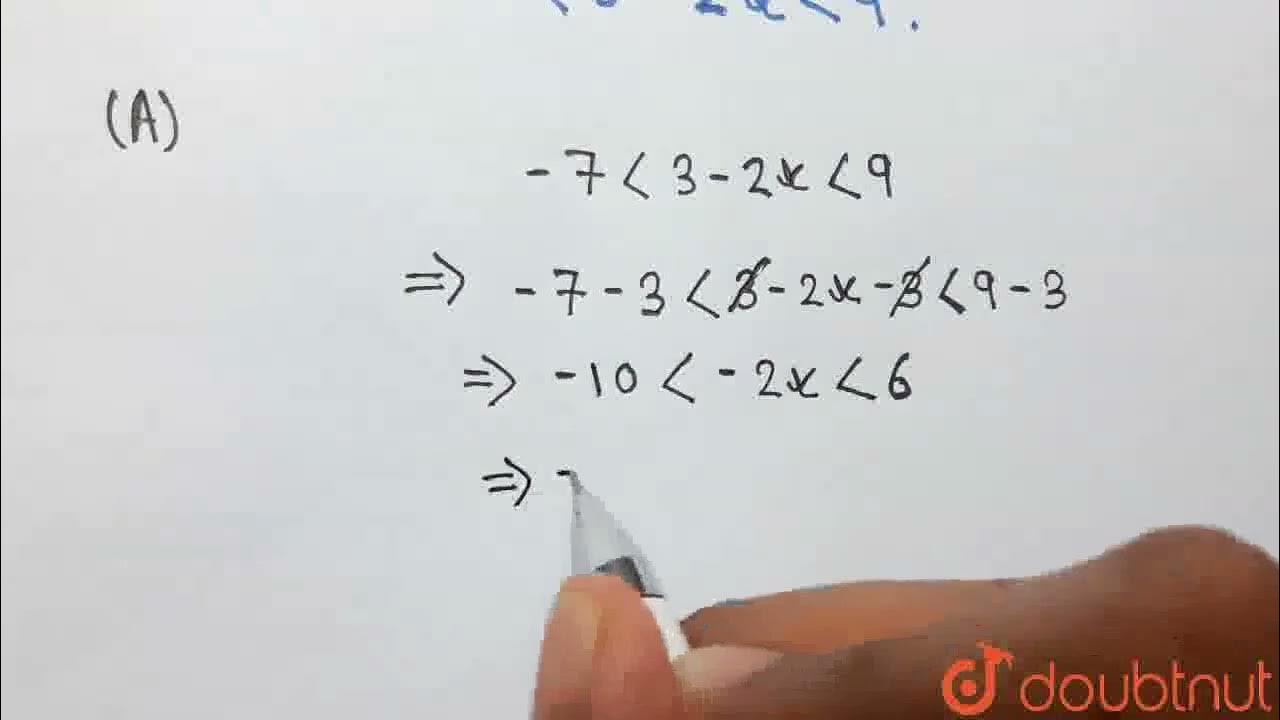 (A)
-7 < 3 - 2x < 9
=> -7 - 3 < 3 - 2x - 3 < 9 - 3
=> -10 < -2x < 6
=> -
doubtnut